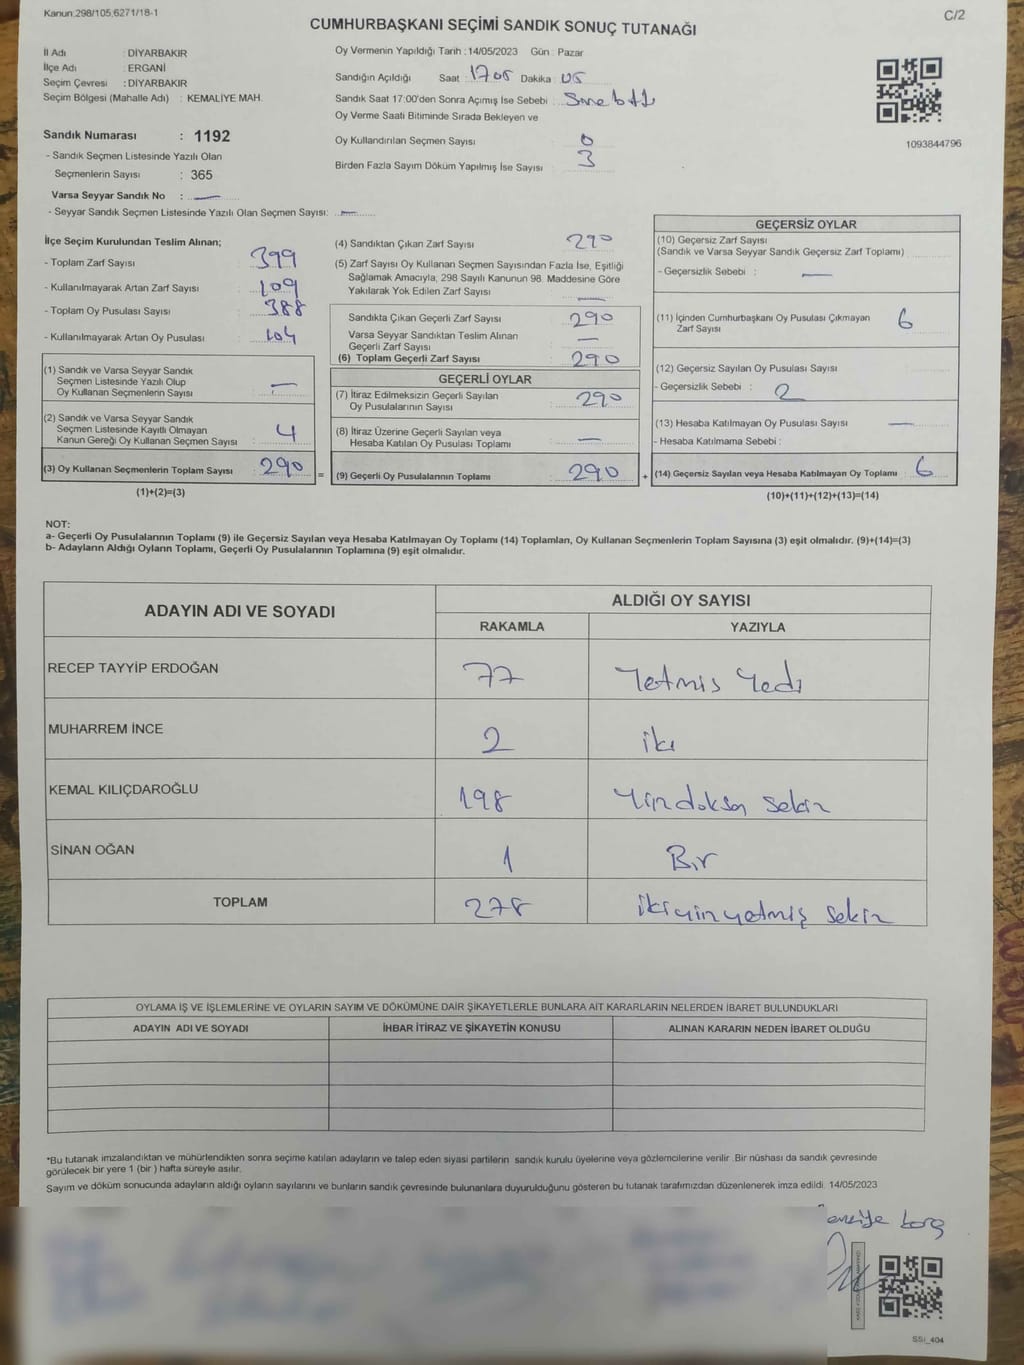 Kanun:298/105;6271/18-1
C/2
CUMHURBAŞKANI SEÇİMİ SANDIK SONUÇ TUTANAĞI
İl Adı : DİYARBAKIR
İlçe Adı : ERGANİ
Seçim Çevresi : DİYARBAKIR
Seçim Bölgesi (Mahalle Adı) : KEMALİYE MAH.
Oy Vermenin Yapıldığı Tarih : 14/05/2023 Gün : Pazar
Sandığın Açıldığı Saat : 1705 Dakika : 05
Sandık Saat 17:00'den Sonra Açımış İse Sebebi :
Oy Verme Saati Bitiminde Sırada Bekleyen ve
Oy Kullandırılan Seçmen Sayısı : 0
Birden Fazla Sayım Döküm Yapılmış İse Sayısı : 3
1093844796
Sandık Numarası : 1192
- Sandık Seçmen Listesinde Yazılı Olan
Seçmenlerin Sayısı : 365
Varsa Seyyar Sandık No : —
- Seyyar Sandık Seçmen Listesinde Yazılı Olan Seçmen Sayısı: —
İlçe Seçim Kurulundan Teslim Alınan;
- Toplam Zarf Sayısı : 399
- Kullanılmayarak Artan Zarf Sayısı : 109
- Toplam Oy Pusulası Sayısı : 388
- Kullanılmayarak Artan Oy Pusulası : 104
(1) Sandık ve Varsa Seyyar Sandık
Seçmen Listesinde Yazılı Olup
Oy Kullanan Seçmenlerin Sayısı : —
(2) Sandık ve Varsa Seyyar Sandık
Seçmen Listesinde Kayıtlı Olmayan
Kanun Gereği Oy Kullanan Seçmen Sayısı : 4
(3) Oy Kullanan Seçmenlerin Toplam Sayısı : 290
(1)+(2)=(3)
(4) Sandıktan Çıkan Zarf Sayısı : 290
(5) Zarf Sayısı Oy Kullanan Seçmen Sayısından Fazla İse, Eşitliği
Sağlamak Amacıyla, 298 Sayılı Kanunun 98. Maddesine Göre
Yakılarak Yok Edilen Zarf Sayısı : —
Sandıkta Çıkan Geçerli Zarf Sayısı : 290
Varsa Seyyar Sandıktan Teslim Alınan
Geçerli Zarf Sayısı : —
(6) Toplam Geçerli Zarf Sayısı : 290
GEÇERLİ OYLAR
(7) İtiraz Edilmeksizin Geçerli Sayılan
Oy Pusulalarının Sayısı : 290
(8) İtiraz Üzerine Geçerli Sayılan veya
Hesaba Katılan Oy Pusulası Toplamı : —
= (9) Geçerli Oy Pusulalarının Toplamı : 290
GEÇERSİZ OYLAR
(10) Geçersiz Zarf Sayısı
(Sandık ve Varsa Seyyar Sandık Geçersiz Zarf Toplamı) :
- Geçersizlik Sebebi : —
(11) İçinden Cumhurbaşkanı Oy Pusulası Çıkmayan
Zarf Sayısı : 6
(12) Geçersiz Sayılan Oy Pusulası Sayısı :
- Geçersizlik Sebebi : 2
(13) Hesaba Katılmayan Oy Pusulası Sayısı : —
- Hesaba Katılmama Sebebi :
+ (14) Geçersiz Sayılan veya Hesaba Katılmayan Oy Toplamı : 6
(10)+(11)+(12)+(13)=(14)
NOT:
a- Geçerli Oy Pusulalarının Toplamı (9) ile Geçersiz Sayılan veya Hesaba Katılmayan Oy Toplamı (14) Toplamları, Oy Kullanan Seçmenlerin Toplam Sayısına (3) eşit olmalıdır. (9)+(14)=(3)
b- Adayların Aldığı Oyların Toplamı, Geçerli Oy Pusulalarının Toplamına (9) eşit olmalıdır.
ADAYIN ADI VE SOYADI ALDIĞI OY SAYISI
RAKAMLA YAZIYLA
RECEP TAYYİP ERDOĞAN 77 Yetmiş Yedi
MUHARREM İNCE 2 iki
KEMAL KILIÇDAROĞLU 198 Yüz doksan sekiz
SİNAN OĞAN 1 Bir
TOPLAM 278 ikiyüz yetmiş sekiz
OYLAMA İŞ VE İŞLEMLERİNE VE OYLARIN SAYIM VE DÖKÜMÜNE DAİR ŞİKAYETLERLE BUNLARA AİT KARARLARIN NELERDEN İBARET BULUNDUKLARI
ADAYIN ADI VE SOYADI İHBAR İTİRAZ VE ŞİKAYETİN KONUSU ALINAN KARARIN NEDEN İBARET OLDUĞU
*Bu tutanak imzalandıktan ve mühürlendikten sonra seçime katılan adayların ve talep eden siyasi partilerin sandık kurulu üyelerine veya gözlemcilerine verilir. Bir nüshası da sandık çevresinde
görülecek bir yere 1 (bir) hafta süreyle asılır.
Sayım ve döküm sonucunda adayların aldığı oyların sayılarını ve bunların sandık çevresinde bulunanlara duyurulduğunu gösteren bu tutanak tarafımızdan düzenlenerek imza edildi. 14/05/2023
SSİ_404